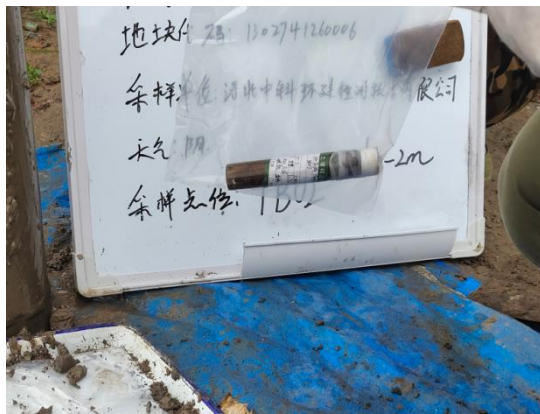 地块代码：1302741260006
采样单位：河北中科环球检测技术有限公司
天气：阴
-2m
采样点位：1B02